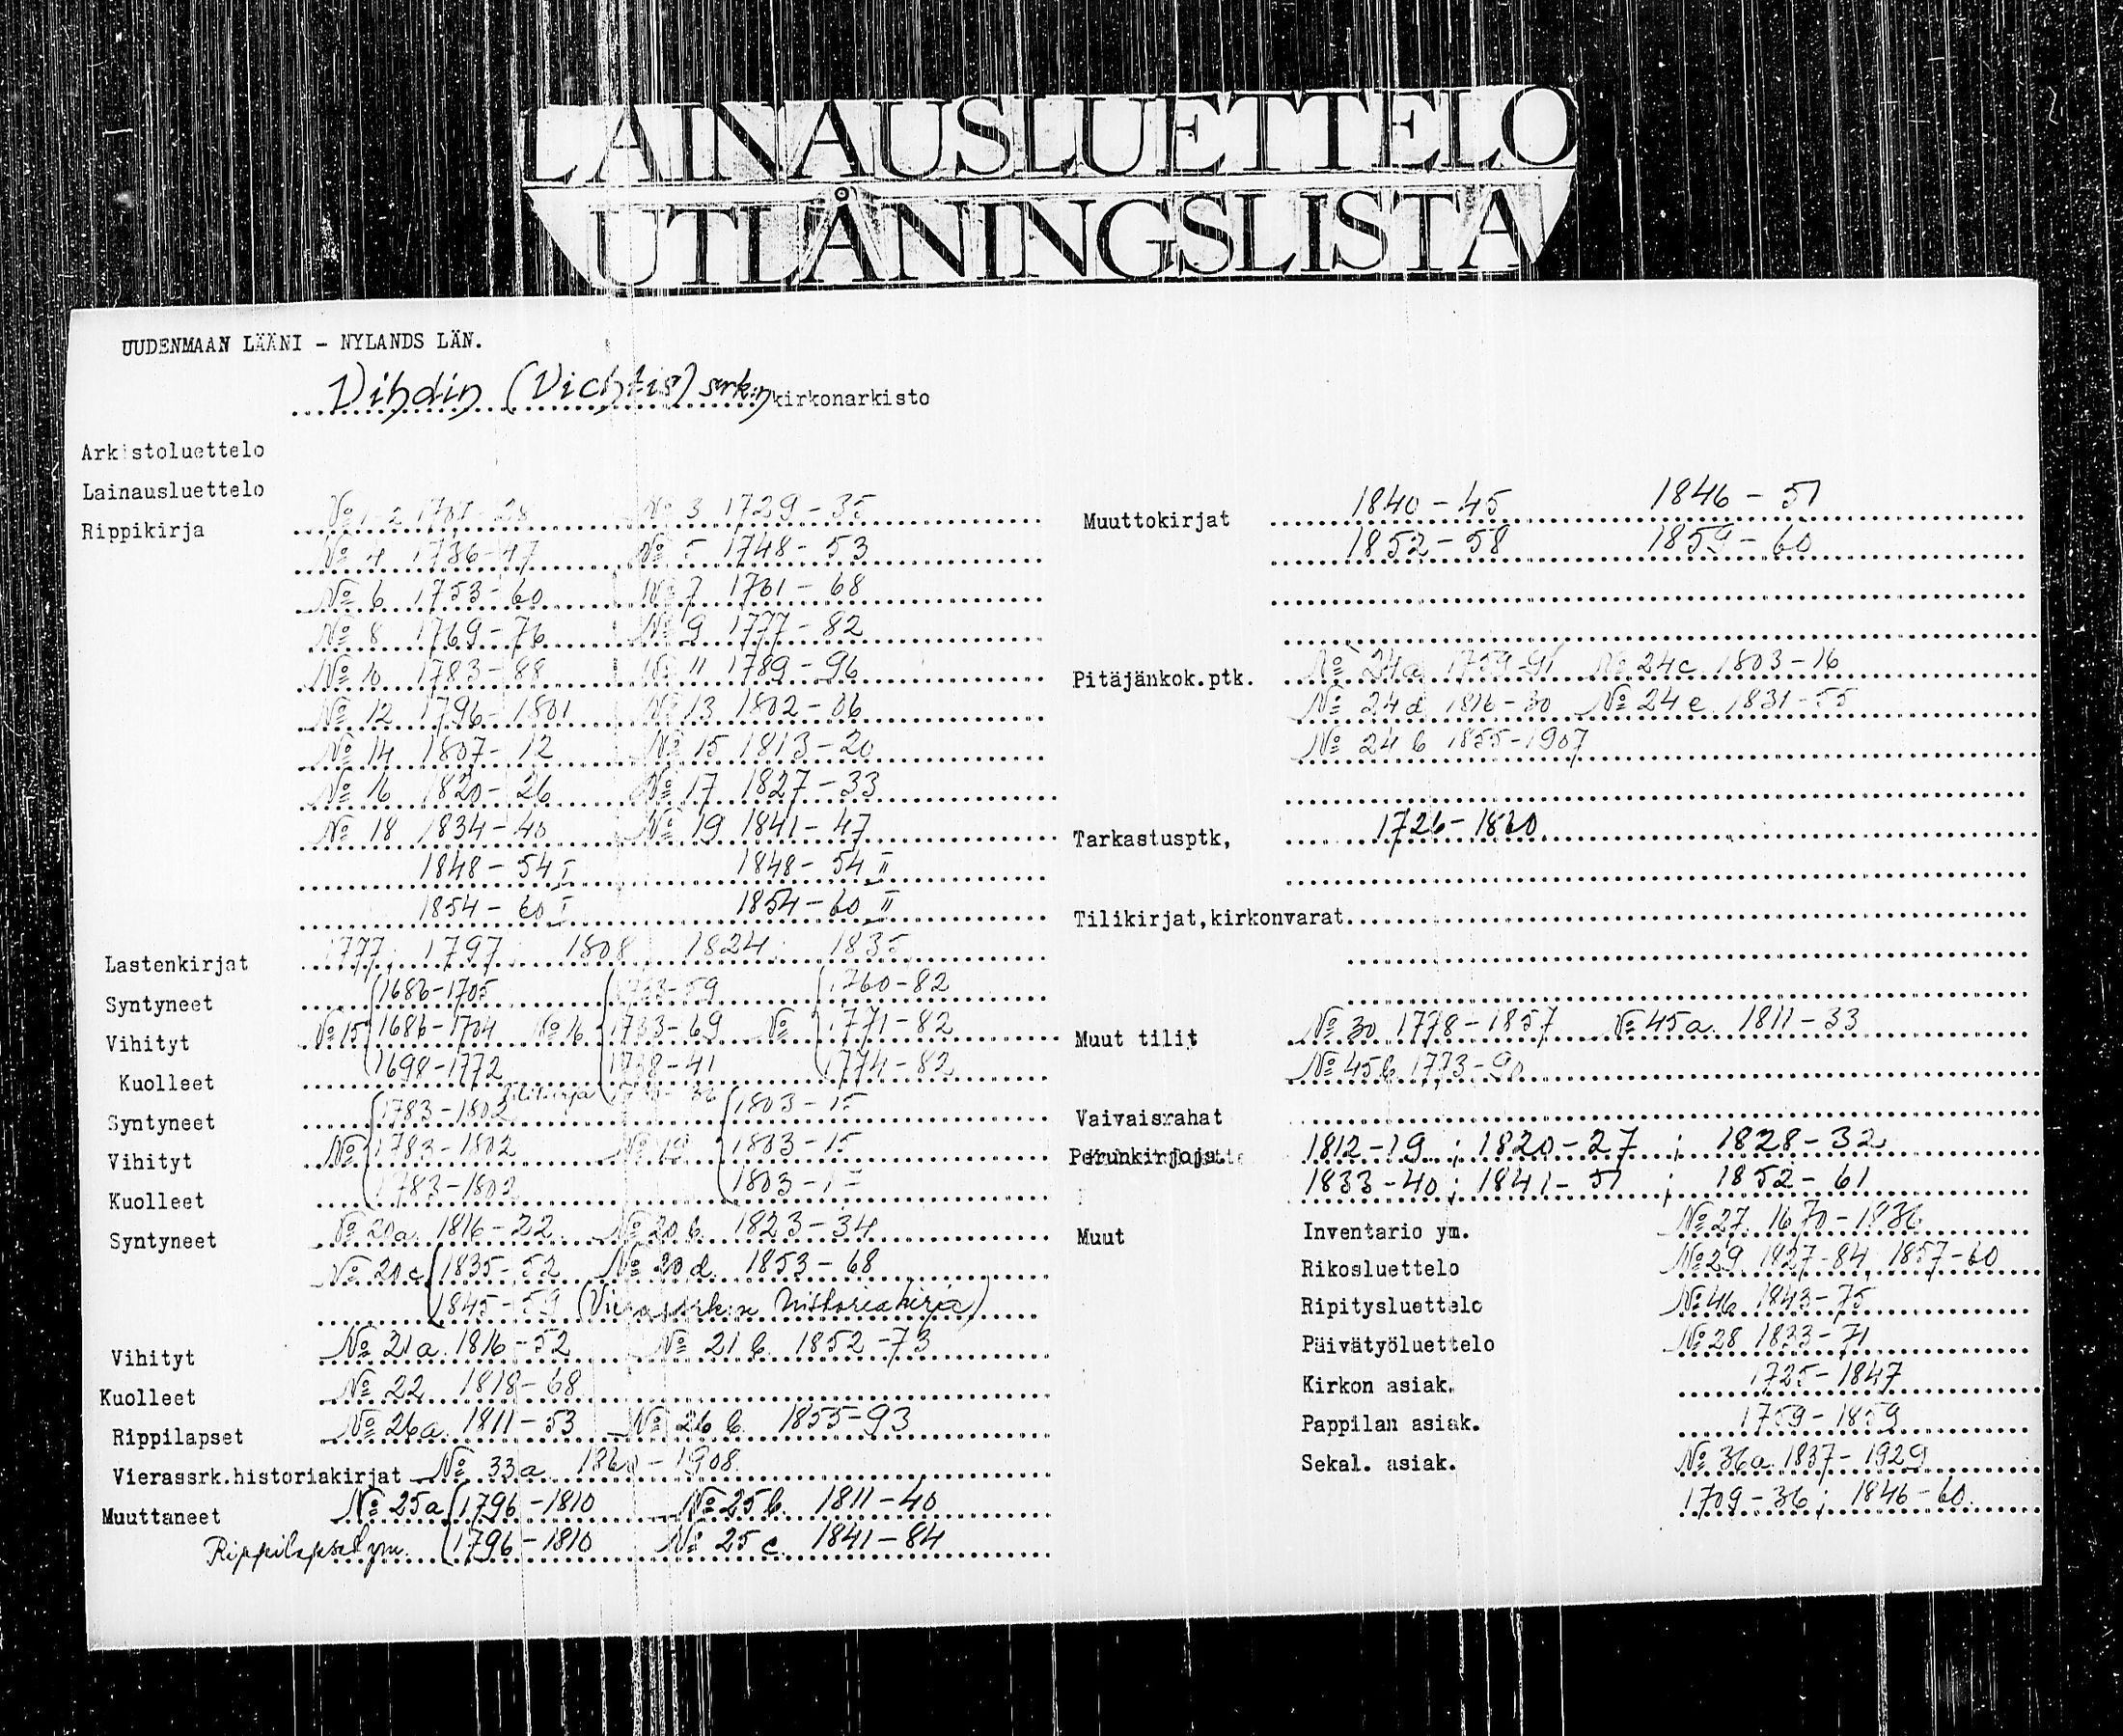 LAINAUSLUETTELO
UTLÅNINGSLISTA
UUDENMAAN LÄÄNI - NYLANDS LÄN.
Vihdin (Vichtis) srk:n kirkonarkisto
Arkistoluettelo
Lainausluettelo
Rippikirja № 1-2 1701-28 № 3 1729-35
№ 4 1736-47 № 5 1748-53
№ 6 1753-60 № 7 1761-68
№ 8 1769-76 № 9 1777-82
№ 10 1783-88 № 11 1789-96
№ 12 1796-1801 № 13 1802-06
№ 14 1807-12 № 15 1813-20
№ 16 1820-26 № 17 1827-33
№ 18 1834-40 № 19 1841-47
1848-54 I 1848-54 II
1854-60 I 1854-60 II
Lastenkirjat 1777; 1797; 1808 1824; 1835
Syntyneet 1686-1705 1733-59 1760-82
Vihityt № 15 1686-1704 № 16 1733-69 № 1771-82
Kuolleet 1698-1772 1738-41 1774-82
Tilikirja
Syntyneet 1783-1802 1803-15
Vihityt № 1783-1802 1803-15
Kuolleet 1783-1802 1803-15
Syntyneet № 20a 1816-22 № 20b 1823-34
№ 20c 1835-52 № 20d. 1853-68
1845-59 (Vierassrk:n historiakirja)
Vihityt № 21a. 1816-52 № 21b. 1852-73
Kuolleet № 22 1818-68
Rippilapset № 26a. 1811-53 № 26b. 1853-93
Vierassrk.historiakirjat № 33a 1860-1908
Muuttaneet № 25a 1796-1810 № 25b. 1811-40
Rippilapset ym. 1796-1810 № 25c. 1841-84
Muuttokirjat 1840-45 1846-51
1852-58 1859-60
Pitäjänkok.ptk. № 24a 1759-91 № 24c 1803-16
№ 24d 1816-30 № 24e 1831-55
№ 24b 1855-1907
Tarkastusptk, 1726-1860
Tilikirjat,kirkonvarat
Muut tilit № 30 1778-1857 № 45a. 1811-33
№ 45b 1773-90
Vaivaisrahat
Perunkirjoja 1812-19; 1820-27; 1828-32
1833-40; 1841-51; 1852-61
Muut Inventario ym. № 27. 1670-1836
Rikosluettelo № 29 1827-84, 1857-60
Ripitysluettelo № 46 1843-75
Päivätyöluettelo № 28 1833-71
Kirkon asiak. 1725-1847
Pappilan asiak. 1759-1859
Sekal. asiak. № 36a 1837-1929
1709-36; 1846-60